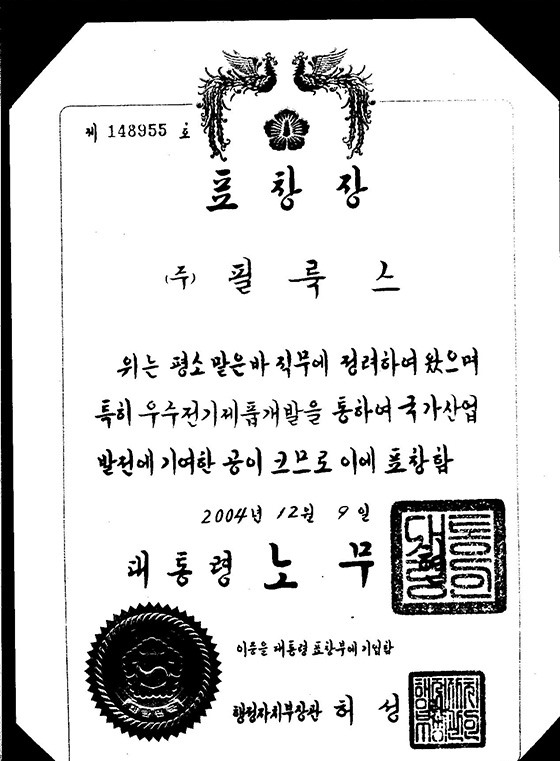 제 148955 호
표창장
(주) 필룩스
위는 평소 맡은바 직무에 정려하여 왔으며
특히 우수전기제품개발을 통하여 국가산업
발전에 기여한 공이 크므로 이에 표창함
2004년 12월 9일
대통령 노무
이증을 대통령 표창부에 기입함
행정자치부장관 허성